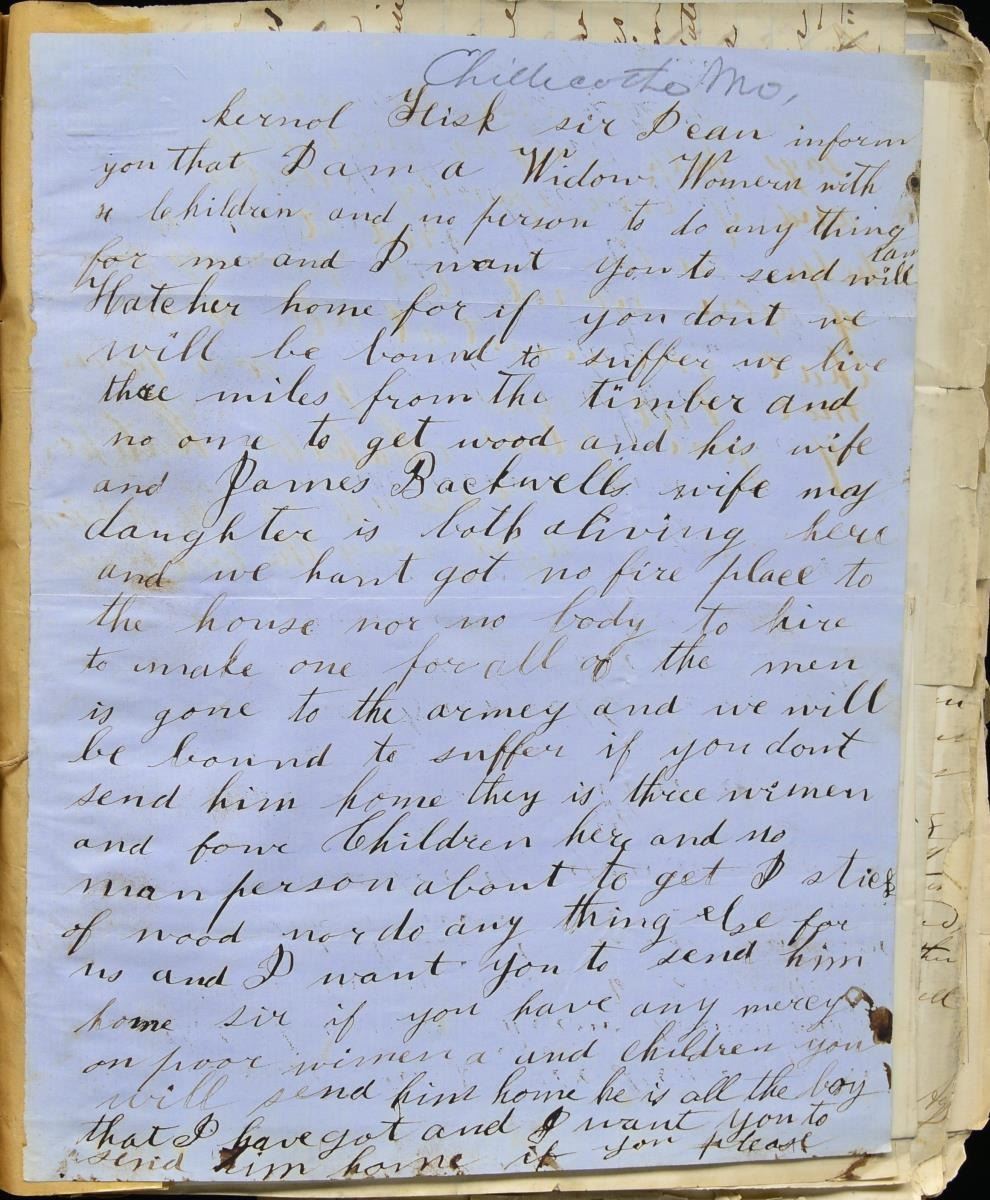 Chillicothe Mo,
kernol Fisk sir I can inform
you that I am a Widow Womern with
Children and no person to do any thing
for me and I want you to send will
Hatcher home for if you dont we
will be bound to suffer we live
three miles from the timber and
no one to get wood and his wife
and James Backwells wife my
daughter is both aliving here
and we hant got no fire place to
the house nor no body to hire
to make one for all of the men
is gone to the armey and we will
be bound to suffer if you dont
send him home they is three wimen
and fowr Children here and no
man person about to get I stick
of wood nor do any thing else for
us and I want you to send him
home sir if you have any mercy
on poor wimen a and children you
will send him home he is all the boy
that I have got and I want you to
send him home if you please